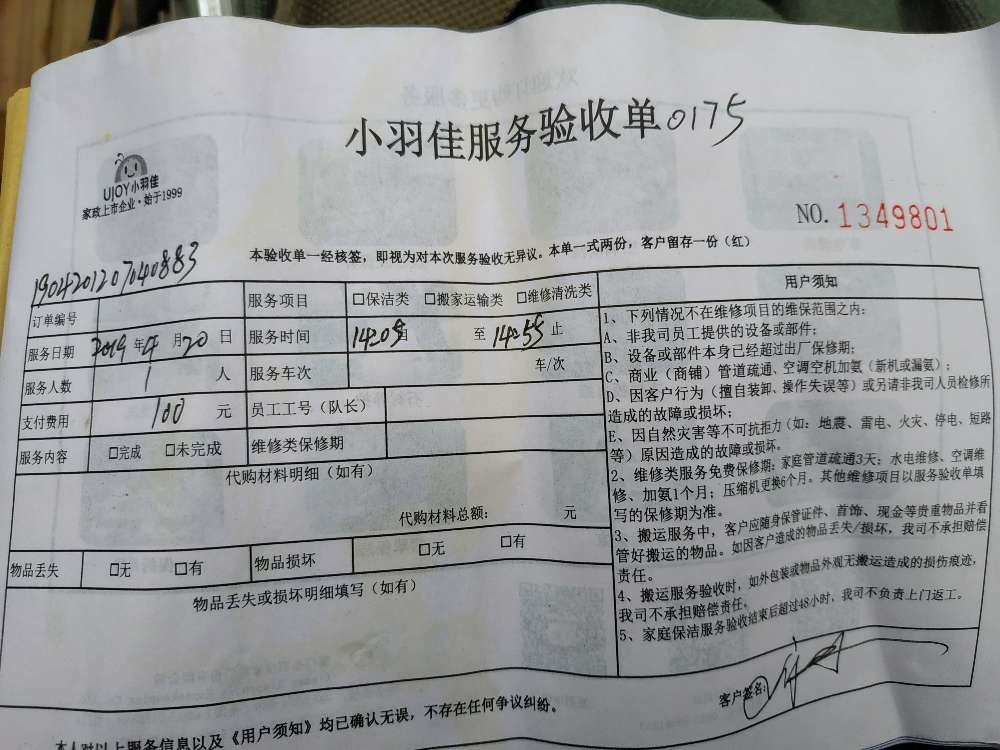 小羽佳服务验收单0175
UJOY小羽佳
家政上市企业·始于1999
NO. 1349801
本验收单一经核签，即视为对本次服务验收无异议。本单一式两份，客户留存一份（红）
1904201207040883
订单编号
服务项目 □保洁类 □搬家运输类 □维修清洗类
服务日期 2019 年 4 月 20 日
服务时间 至 止
服务人数 1 人
服务车次 车/次
支付费用 100 元
员工工号（队长）
服务内容 □完成 □未完成
维修类保修期
代购材料明细（如有）
代购材料总额： 元
物品丢失 □无 □有
物品损坏 □无 □有
物品丢失或损坏明细填写（如有）
用户须知
1、下列情况不在维修项目的维保范围之内：
A、非我司员工提供的设备或部件；
B、设备或部件本身已经超过出厂保修期；
C、商业（商铺）管道疏通、空调空机加氨（新机或漏氨）；
D、因客户行为（擅自装卸、操作失误等）或另请非我司人员检修所
造成的故障或损坏；
E、因自然灾害等不可抗拒力（如：地震、雷电、火灾、停电、短路
等）原因造成的故障或损坏。
2、维修类服务免费保修期：家庭管道疏通3天；水电维修、空调维
修、加氨1个月；压缩机更换6个月。其他维修项目以服务验收单填
写的保修期为准。
3、搬运服务中，客户应随身保管证件、首饰、现金等贵重物品并看
管好搬运的物品。如因客户造成的物品丢失/损坏，我司不承担赔偿
责任。
4、搬运服务验收时，如外包装或物品外观无搬运造成的损伤痕迹，
我司不承担赔偿责任。
5、家庭保洁服务验收结束后超过48小时，我司不负责上门返工。
客户签名：
本人对以上服务信息以及《用户须知》均已确认无误，不存在任何争议纠纷。